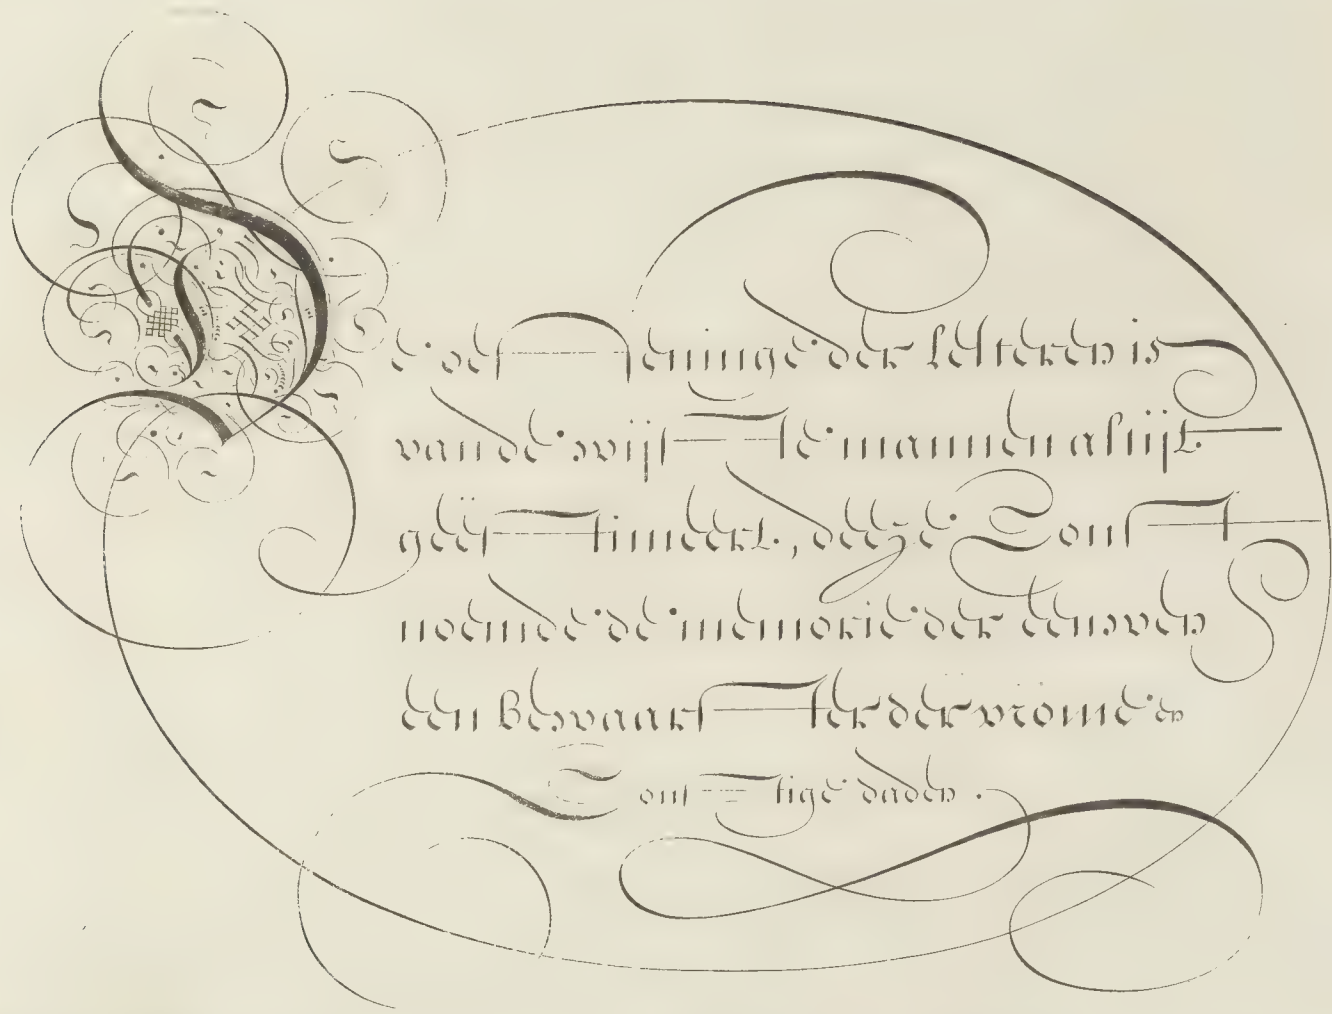 De oeffeninge der letteren is
van de wijste mannen altijt
geëstimeert, deeze Const
noemde de memorie der eeuwen
een Bewaarster der vrome en
Constige daden.